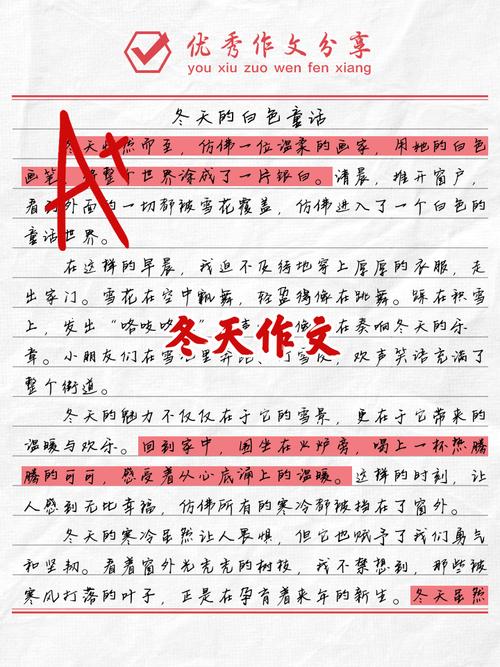 优秀作文分享
you xiu zuo wen fen xiang
A+
冬天的白色童话
冬天 然而至，仿佛一位温柔的画家，用她的白色
画笔 整个世界涂成了一片银白。清晨，推开窗户，
看 外面的一切都被雪花覆盖，仿佛进入了一个白色的
童话世界。
在这样的早晨，我迫不及待地穿上厚厚的衣服，走
出家门。雪花在空中飘舞，轻盈得像在跳舞。踩在积雪
上，发出“咯吱咯 声 像 在奏响冬天的乐
章。小朋友们在雪 里奔 、打雪仗，欢声笑语充满了
整个街道。
冬天作文
冬天的魅力不仅仅在于它的雪景，更在于它带来的
温暖与欢乐。回到家中，围坐在火炉旁，喝上一杯热腾
腾的可可，感受着从心底涌上的温暖。这样的时刻，让
人感到无比幸福，仿佛所有的寒冷都被挡在了窗外。
冬天的寒冷虽然让人畏惧，但它也赋予了我们勇气
和坚韧。看着窗外光秃秃的树枝，我不禁想到，那些被
寒风打落的叶子，正是在孕育着来年的新生。冬天虽然